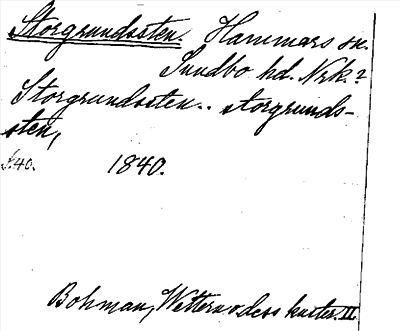 Storgrundssten. Hammars sn.
Sundbo hd. Nrk.?
Storgrundssten.. storgrunds-
sten,
s. 40. 1840.
Bohman, Wettern o dess kuster. II